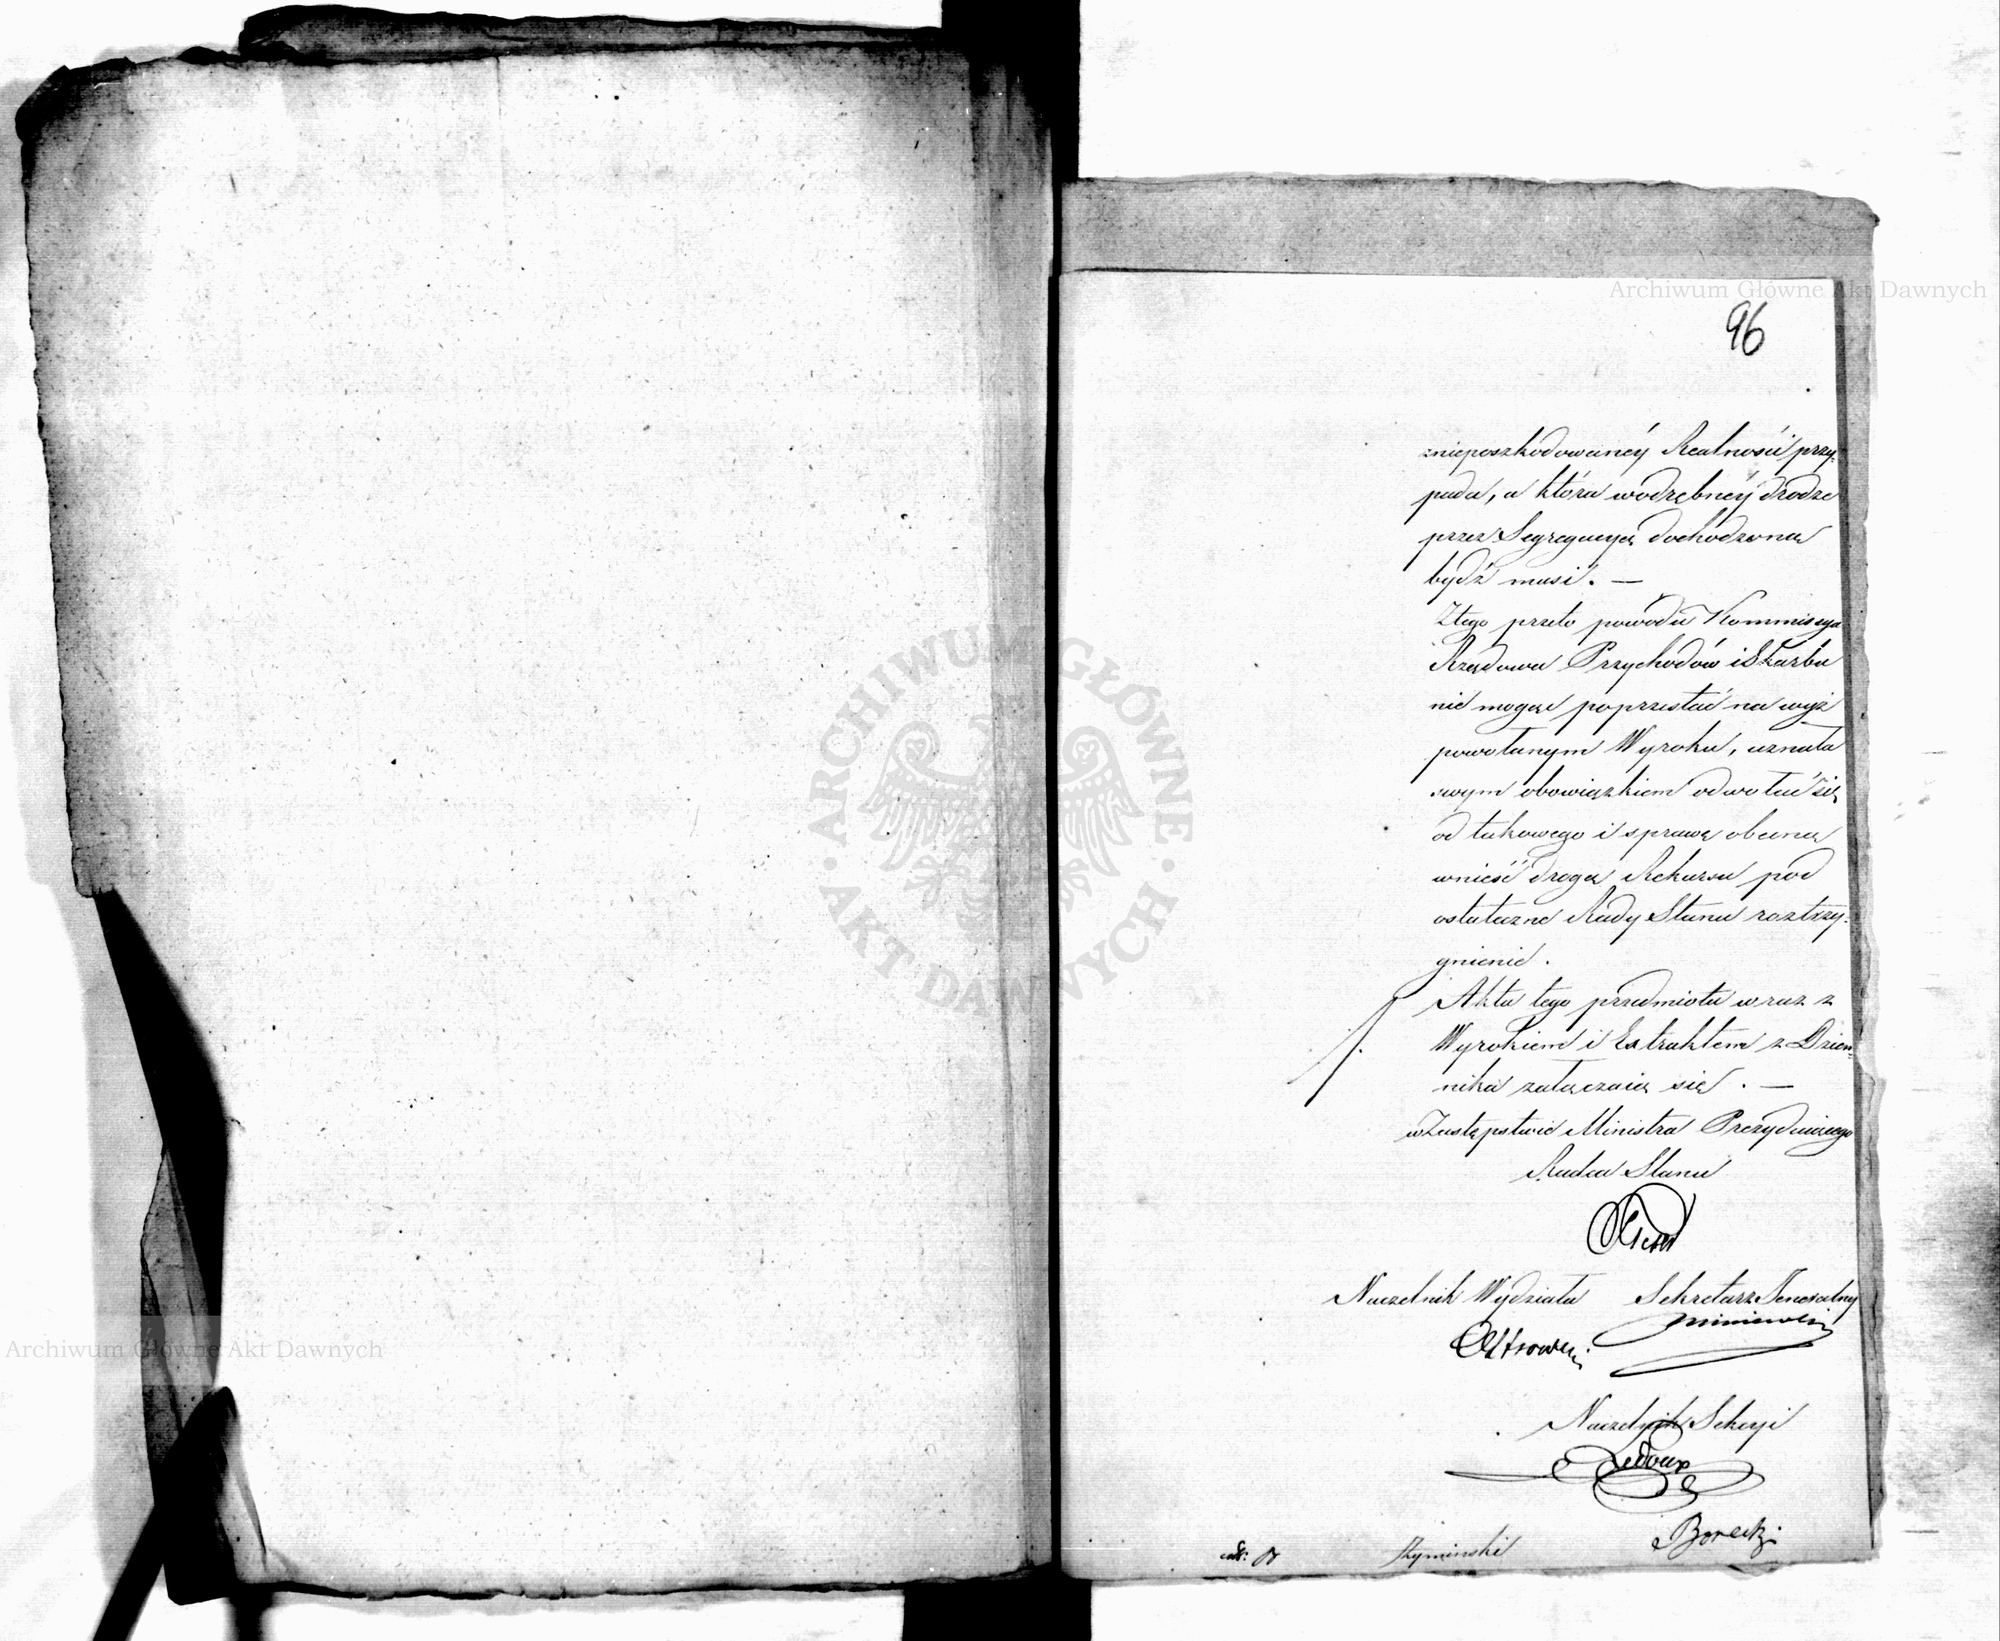 96
znieposzkodowanéy Realności przy-
pada, a która wodrębnéy drodze
przez Segregacyą dochodzoną
bydź musi. —
Ztego przeto powodu Kommissya
Rządowa Przychodów i Skarbu
nie mogąc poprzestać na wyż
powołanym Wyroku, uznała
swym obowiązkiem odwołać się
od takowego i sprawę obecną
wnieść drogą Rekursu pod
ostateczne Rady Stanu roztrzy-
gnienie.
Akta tego przedmiotu wraz z
Wyrokiem i Extraktem z Dzien-
nika załączaią się. —
w Zastępstwie Ministra Prezyduiącego
Radca Stanu
Naczelnik Wydziału Sekretarz Jeneralny
Naczelnik Sekcyi
Ledoux
Borecki
Szyminski
Archiwum Główne Akt Dawnych
Archiwum Główne Akt Dawnych
ARCHIWUM GŁÓWNE
AKT DAWNYCH